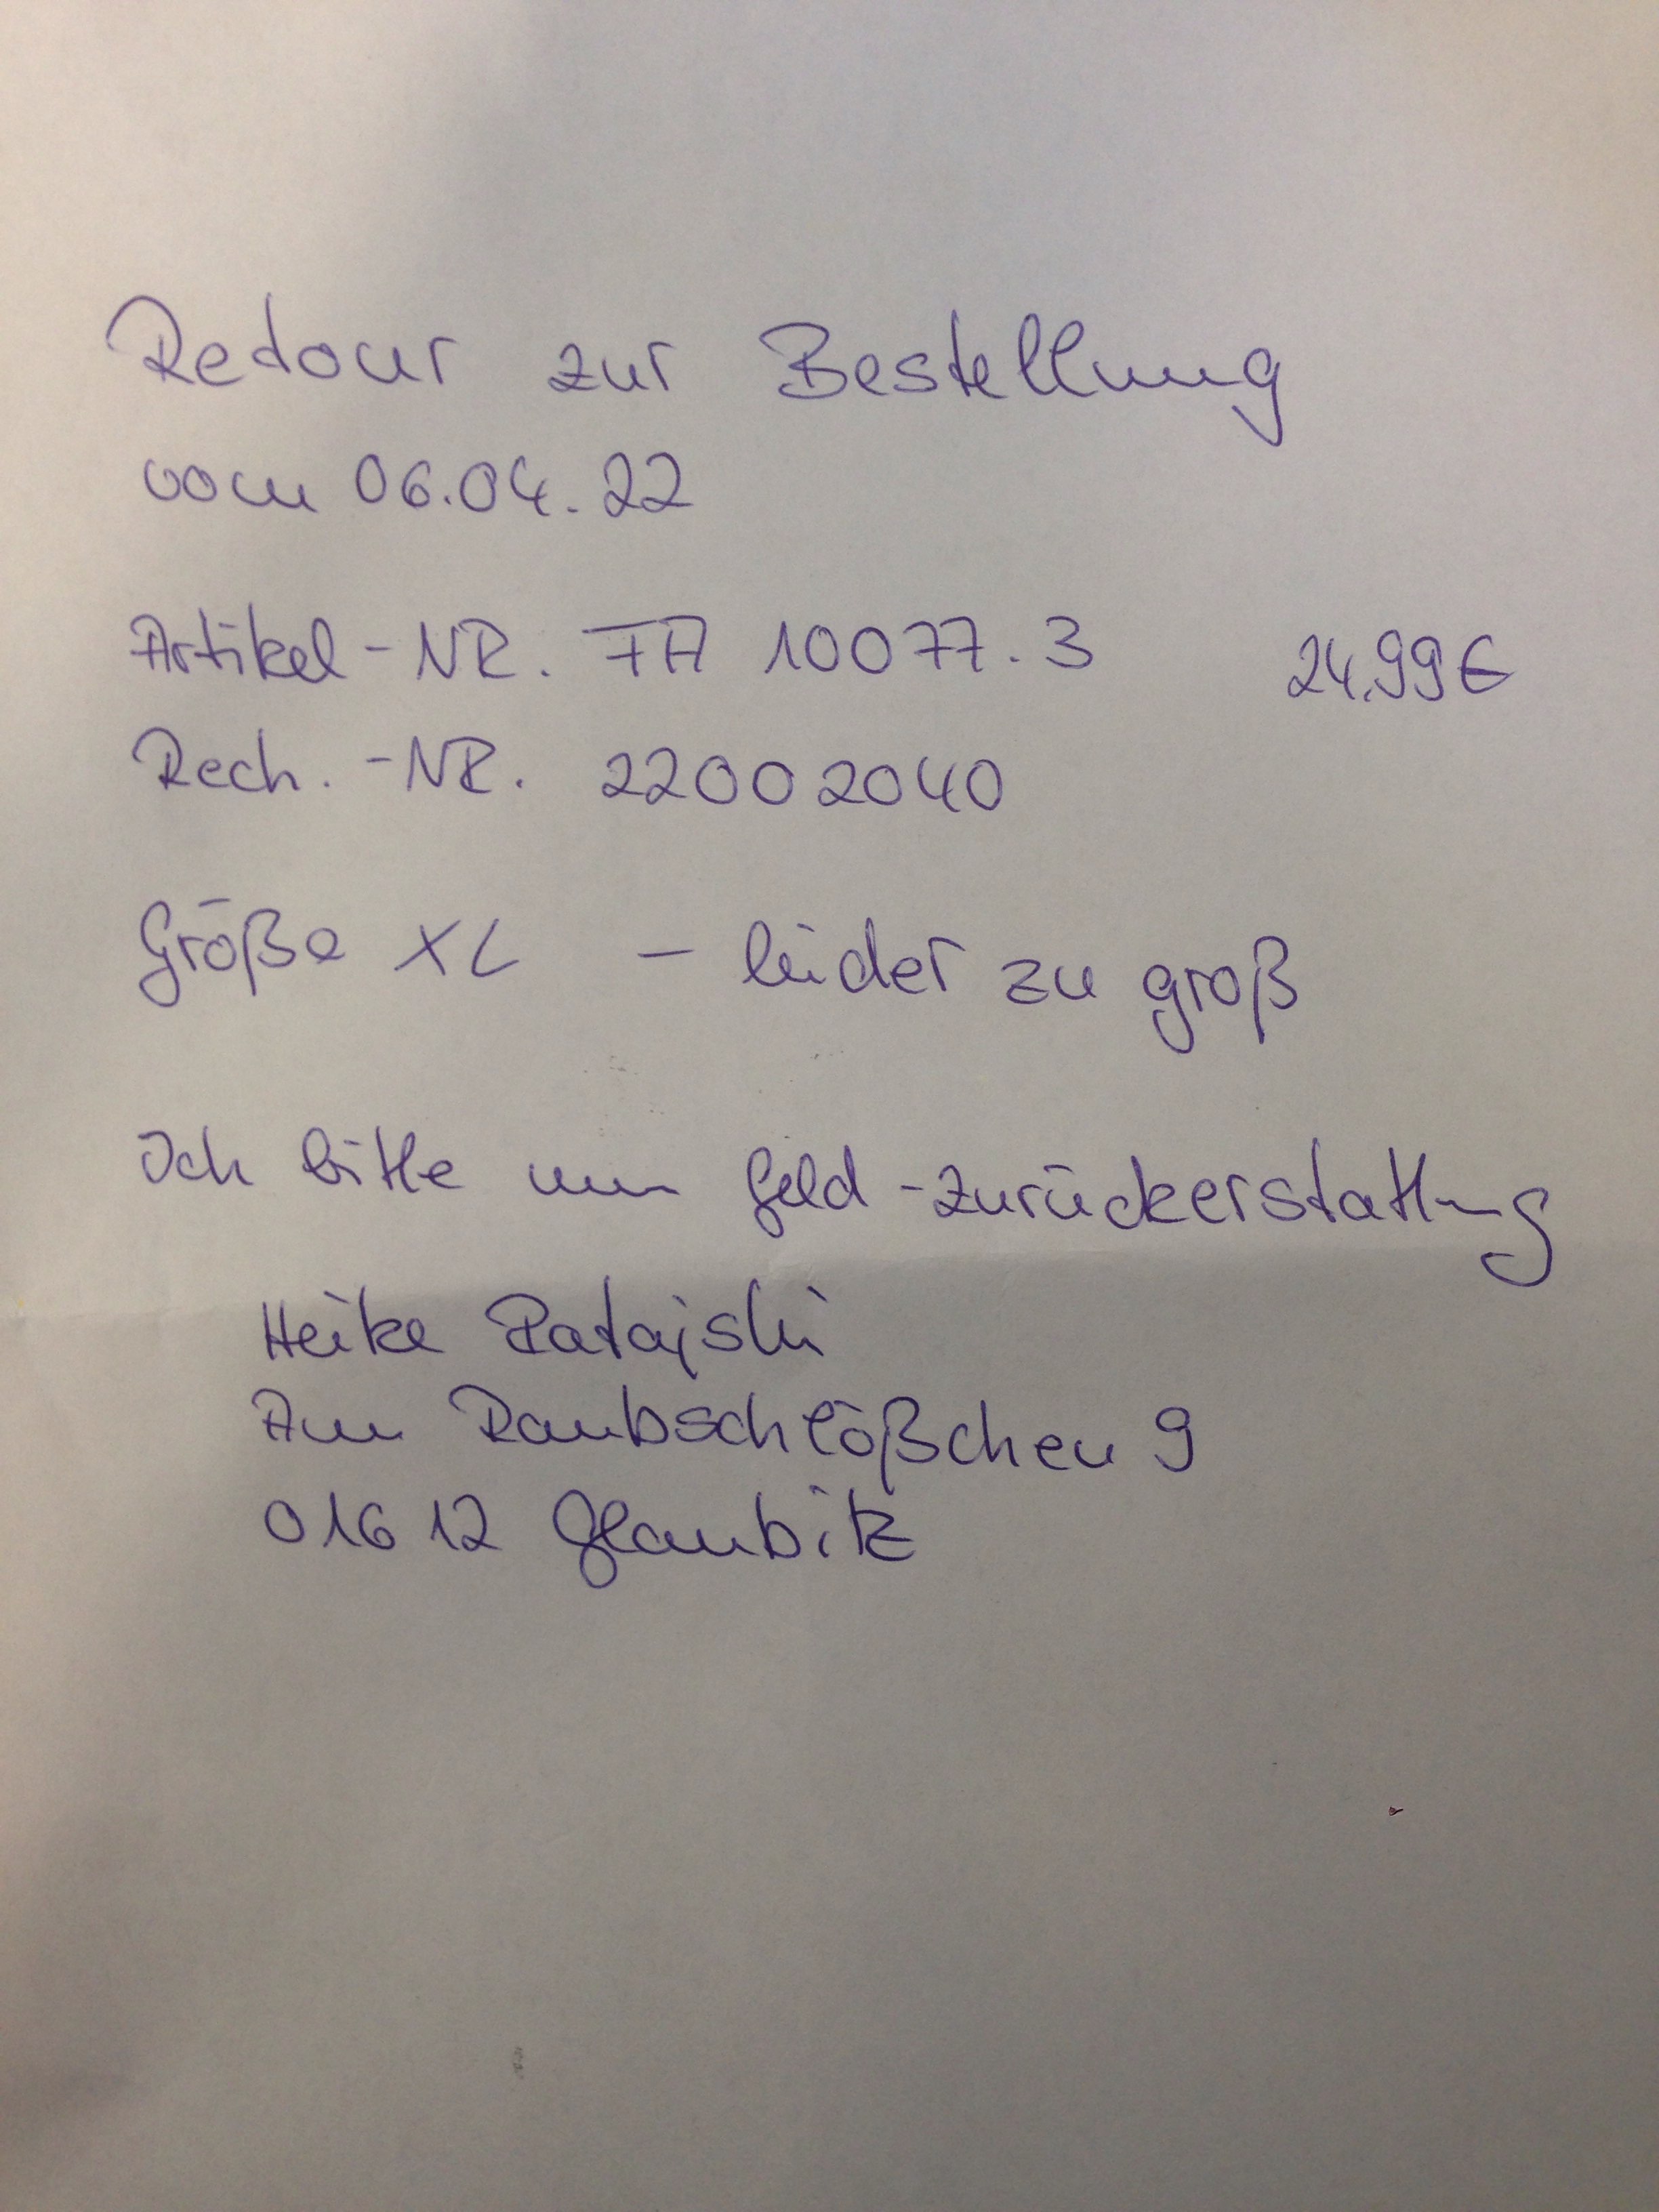 Retour zur Bestellung
vom 06.04.22
Artikel-NR. FA 10077.3 24.99€
Rech.-NR. 22002040
Größe XL - leider zu groß
Ich bitte um Geld-zurückerstattung
Heike Ratajski
Am Raubschlößchen 9
01612 Glaubitz